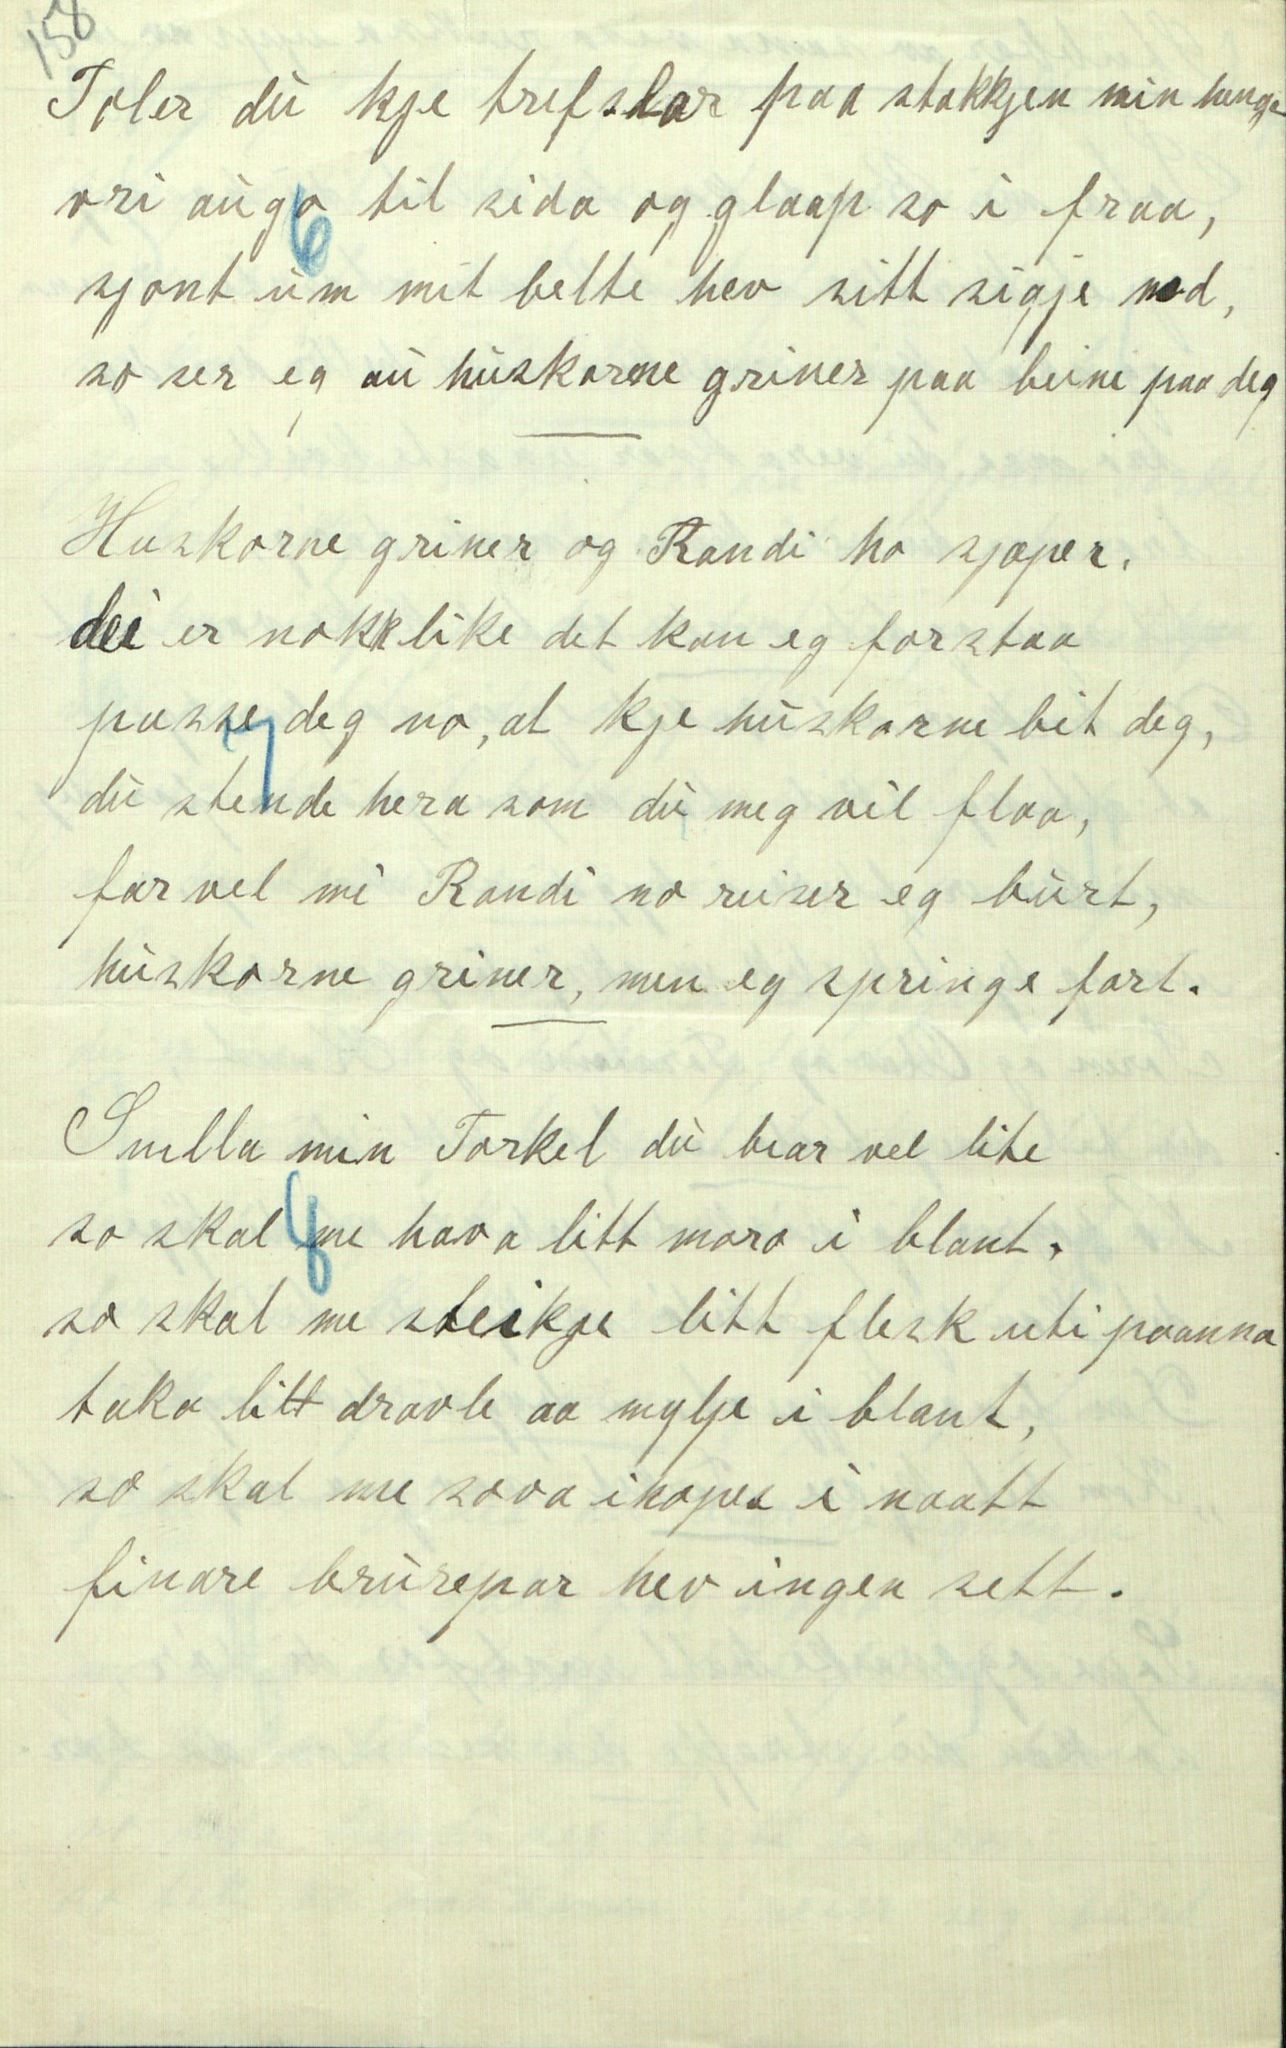 158
Toler du kje trefslar paa stakkjen min henge
vri auga til sida og glaap so i fraa,
6
sjønt um mit belte hev sitt sigje ned,
so ser eg au huskorne griner paa beine paa deg
Huskorne griner og Randi ho sjæper.
dei er nokk like det kan eg forstaa
passe deg no, at kje huskorne bit deg,
7
du stende hera som du meg vil flaa,
far vel mi Randi no reiser eg burt,
huskorne griner, men eg springe fort.
Snilla min Torkel du biar vel lite
so skal me hava litt moro i blant.
8
so skal me steikje litt flesk uti paanna
taka litt dravle aa mylje i blant,
so skal me sova ihopes i naatt
finare brurepar hev ingen sett.